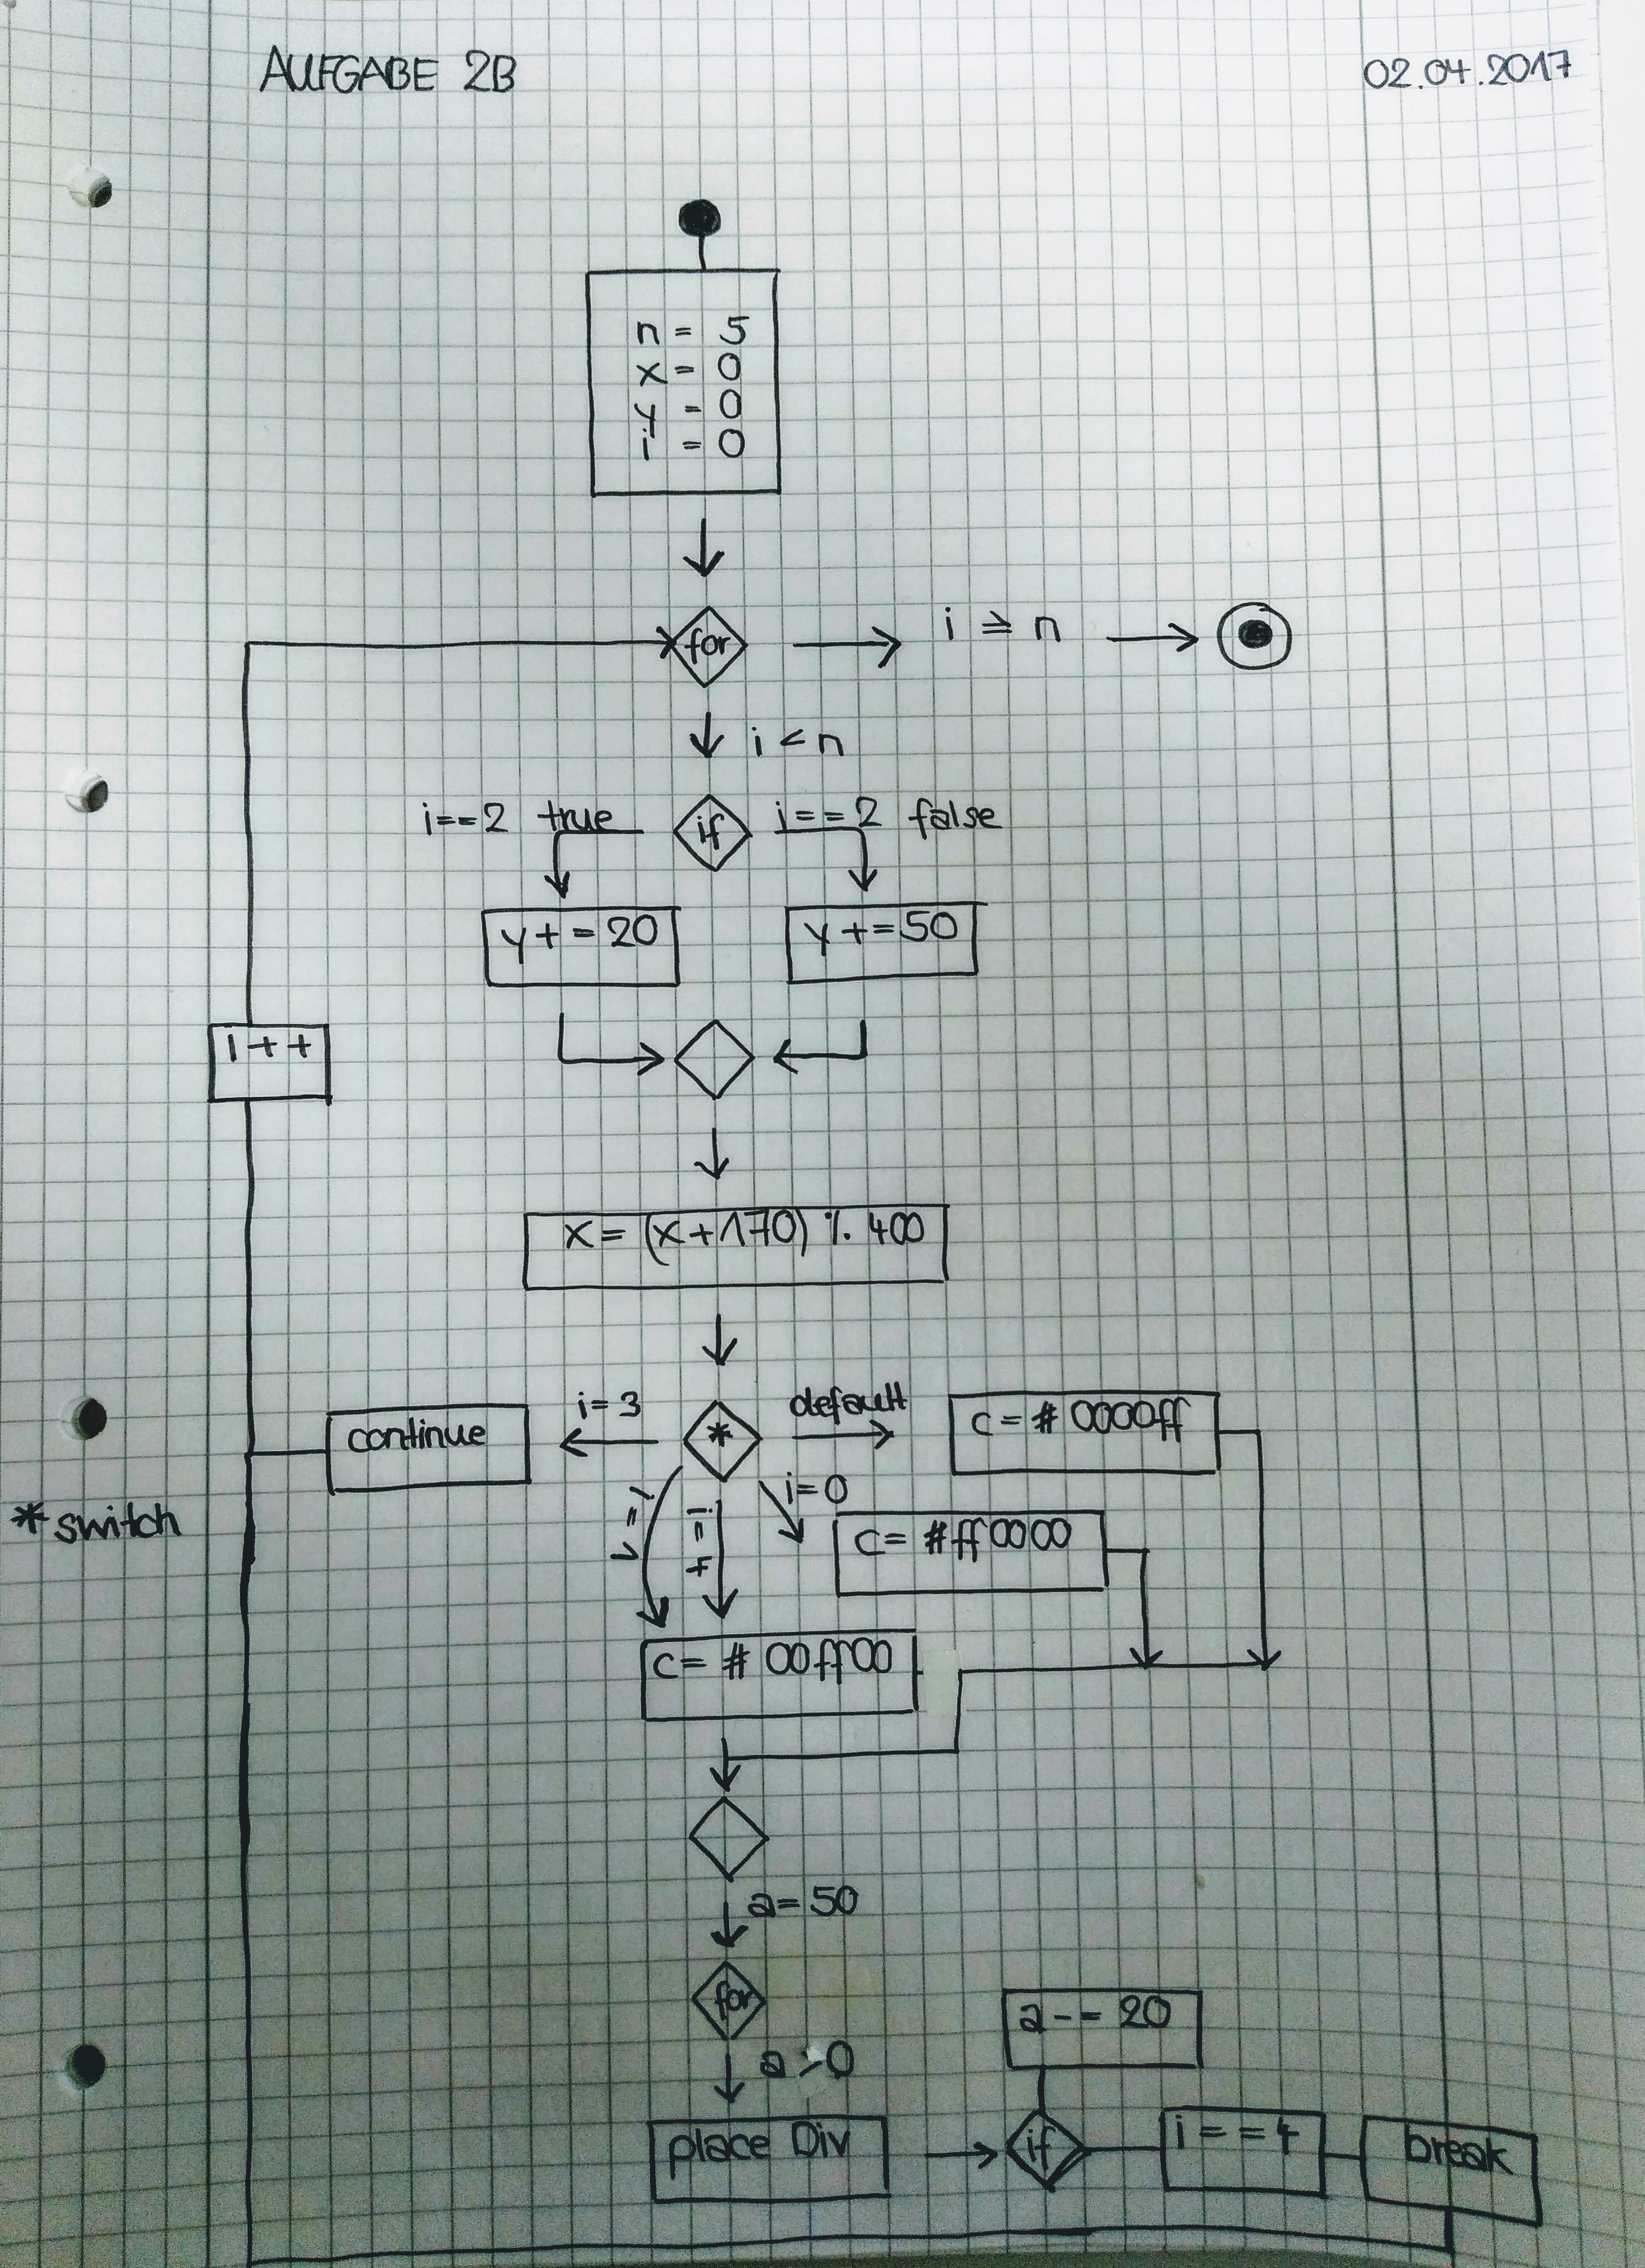 AUFGABE 2B
02.04.2017
n = 5
x = 0
y = 0
i = 0
for
i ≥ n
i < n
i==2 true
if
i==2 false
y+=20
y+=50
i++
x=(x+170) % 400
continue
i=3
*
default
c=#0000ff
*switch
i=1
i=4
i=0
c=#ff0000
c=#00ff00
a=50
for
a-=20
a>0
place Div
if
i==4
break